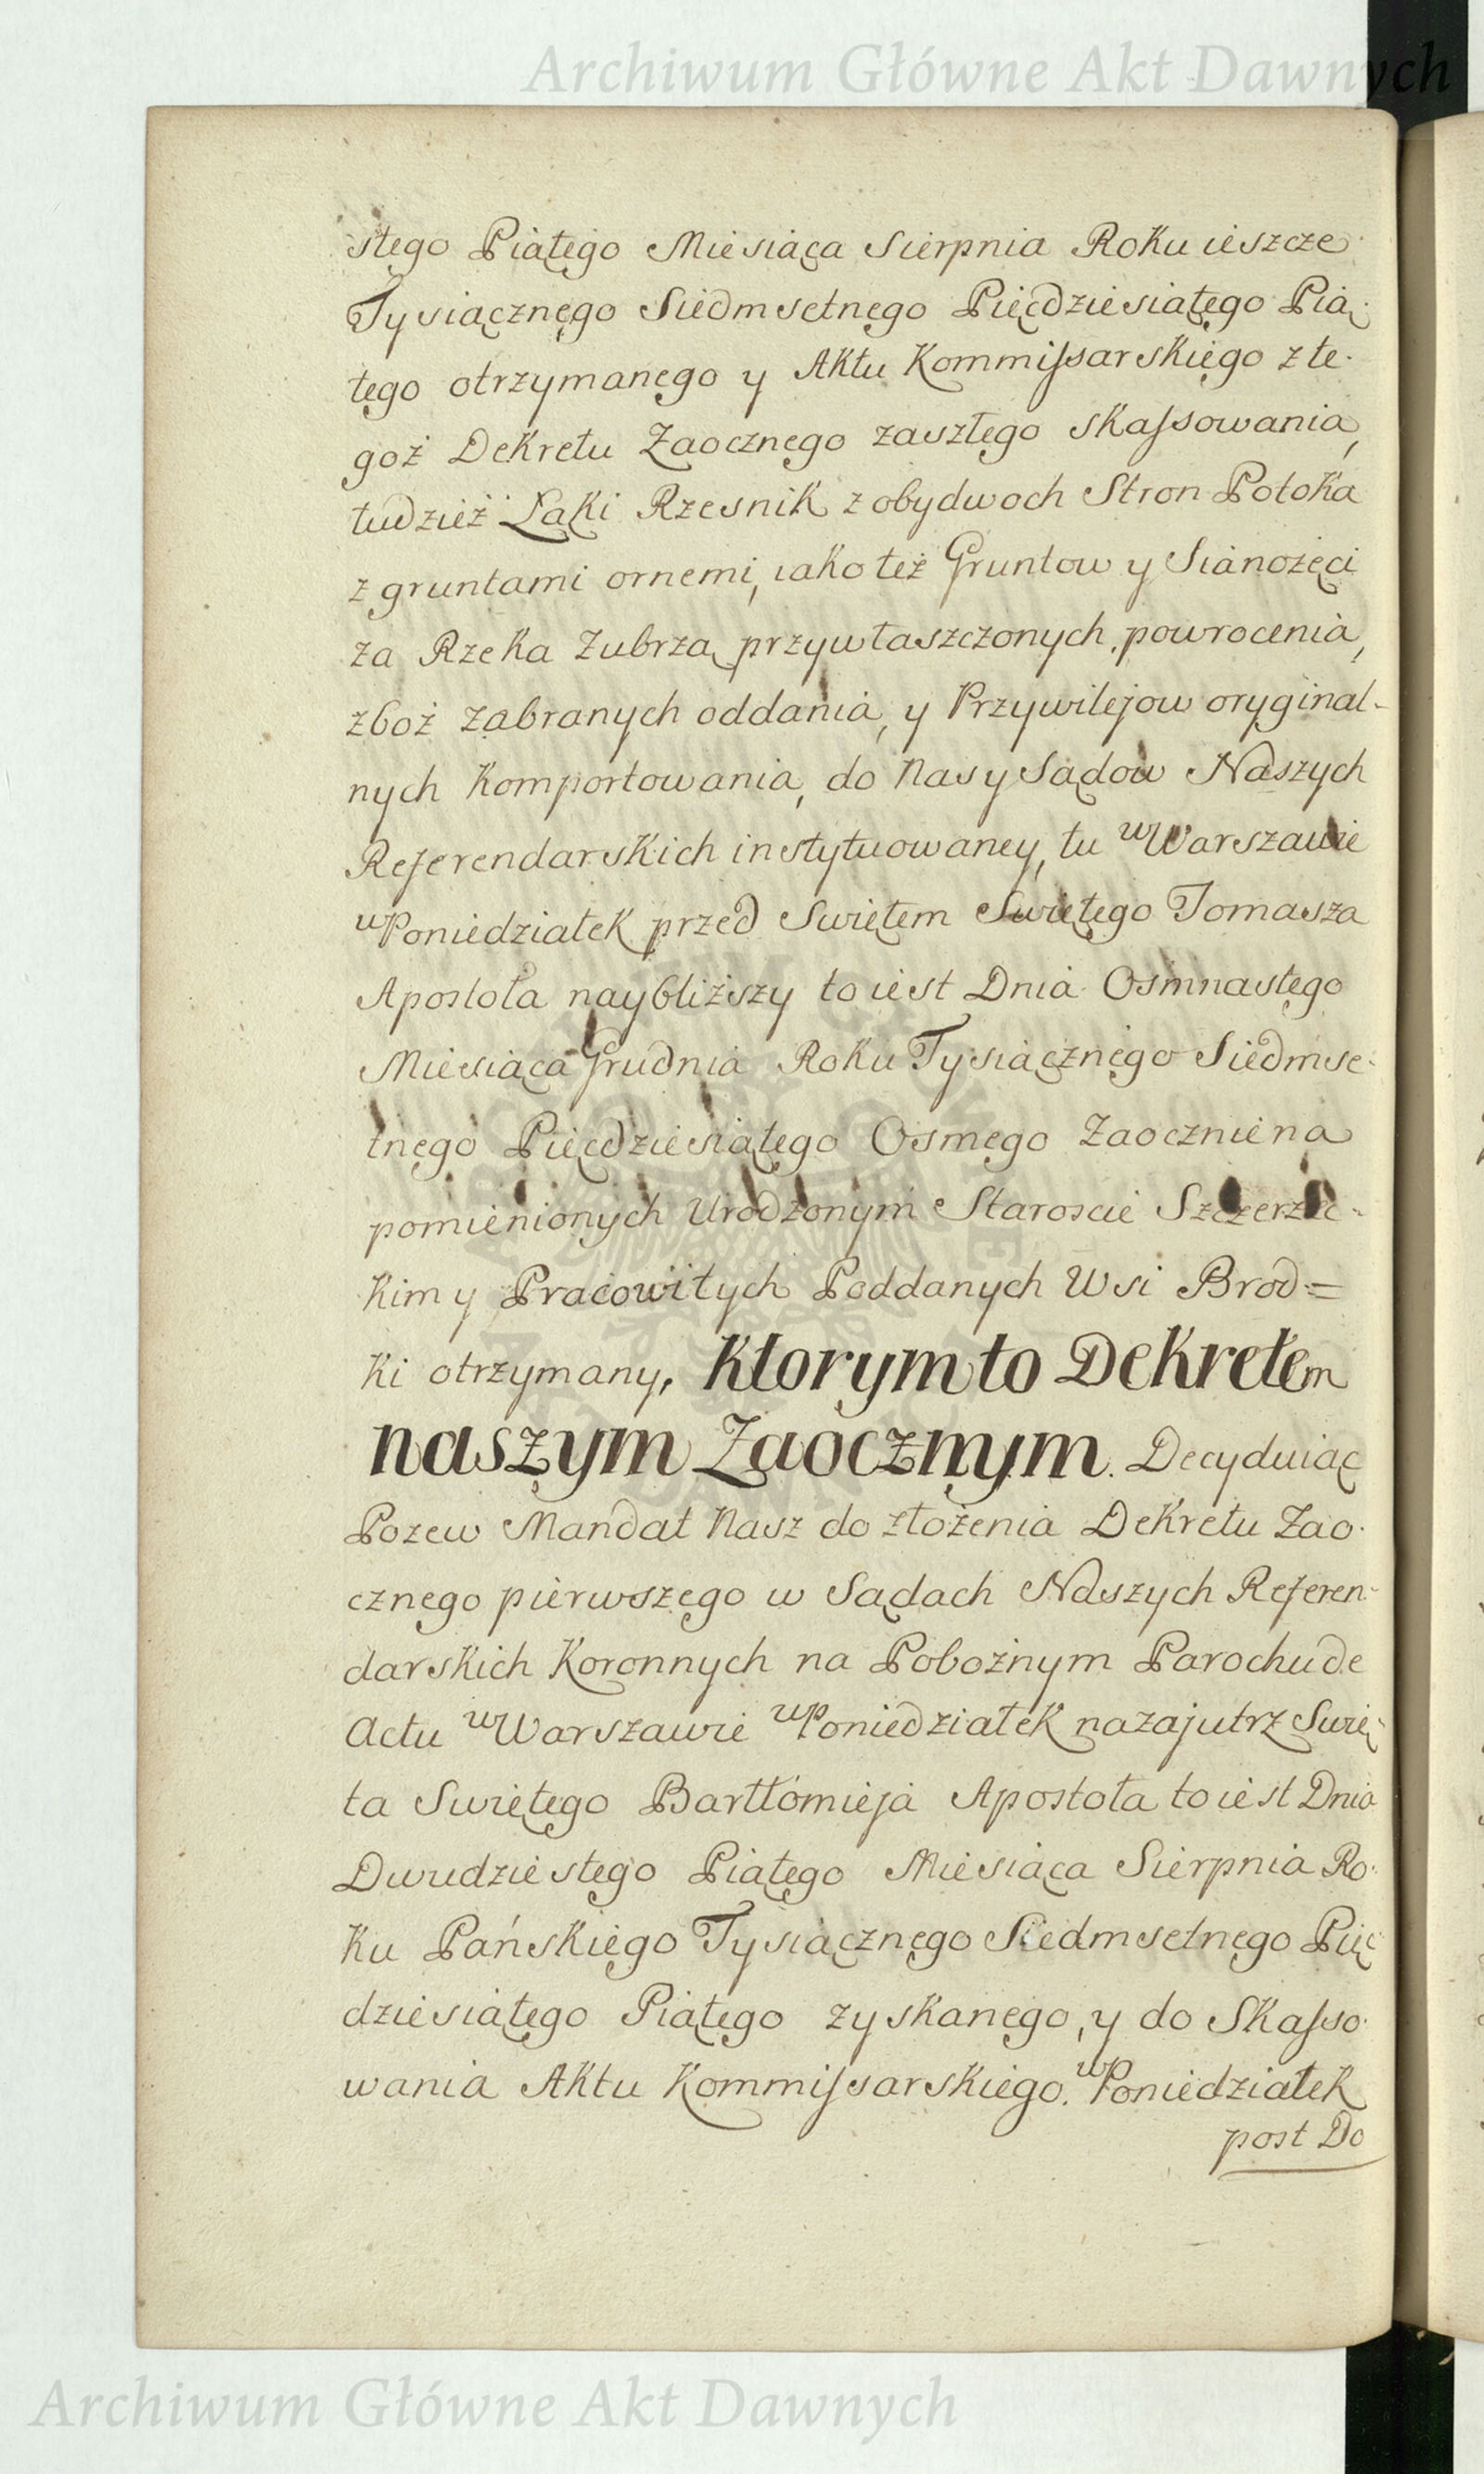 Archiwum Główne Akt Dawnych
stego Piątego Miesiąca Sierpnia Roku ieszcze
Tysiącznego Siedmsetnego Pięcdziesiątego Pią-
tego otrzymanego y Aktu Kommissarskiego z te-
goż Dekretu Zaocznego zaszłego skassowania,
tudzież Łąki Rzesnik z obydwoch Stron Potoka
z gruntami ornemi, iako też Gruntow y Sianożęci
za Rzeka Zubrzą przywłaszczonych powrocenia,
zboż zabranych oddania, y Przywilejow oryginal-
nych komportowania, do Nas y Sądow Naszych
Referendarskich instytuowaney, tu w Warszawie
w Poniedziałek przed Swiętem Swiętego Tomasza
Apostoła naybliższy to iest Dnia Osmnastego
Miesiąca Grudnia Roku Tysiącznego Siedmse-
tnego Pięcdziesiątego Osmego Zaocznie na
pomienionych Urodzonym Staroscie Szczerzec-
kim y Pracowitych Poddanych Wsi Brod=
ki otrzymany, Ktorym to Dekretem
naszym Zaocznym. Decyduiąc
Pozew Mandat Nasz do złożenia Dekretu Zao-
cznego pierwszego w Sądach Naszych Referen-
darskich Koronnych na Pobożnym Parochu de
Actu w Warszawie w Poniedziałek nazajutrz Swię-
ta Swiętego Bartłomieja Apostoła to iest Dnia
Dwudziestego Piątego Miesiąca Sierpnia Ro-
ku Pańskiego Tysiącznego Siedmsetnego Pięc
dziesiątego Piątego zyskanego, y do Skasso-
wania Aktu Kommissarskiego. w Poniedziałek
post Do
Archiwum Główne Akt Dawnych